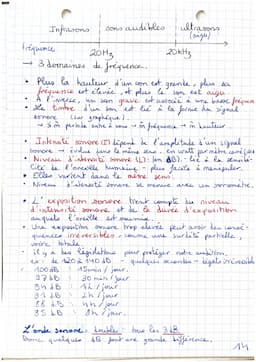 Infrasons | sons audibles | ultrasons
(aigu)
fréquence 20Hz 20kHz
→ 3 domaines de fréquence.
• Plus la hauteur d'un son est grande, plus sa
fréquence est élevée, et plus le son est aigu.
• A l'inverse, un son grave est associé à une basse fréquence
• Le timbre d'un son est lié à la forme du signal
sonore (sur graphique).
→ Si on période entre → fréquence → hauteur
• Intensité sonore (I) dépend de l'amplitude d'un signal
sonore → évolue dans le même sens. En watt par mètre carré
• Niveau d'intensité sonore (L): (en dB): lié à la sensibi-
lité de l'oreille humaine → plus facile à manipuler.
• Elles varient dans le même sens.
• Niveau d'intensité sonore se mesure avec un sonomètre.
• L'exposition sonore tient compte du niveau
d'intensité sonore et de la durée d'exposition
auxquels l'oreille est soumise.
• Une exposition sonore trop élevée peut avoir des consé-
quences irréversibles, comme une surdité partielle,
voire totale.
• il y a des législations pour protéger notre audition.
ex: de 120 à 140 dB - quelques secondes - dégâts irréversibles
100dB : 15min / jour.
97 dB : 30 min / jour.
94 dB : 1h / jour.
91 dB : 2h / jour
88 dB : 4h / jour
85 dB : 8h / jour.
L'onde sonore: double: tous les 3 dB
Donc quelques dB font une grande différence.
14